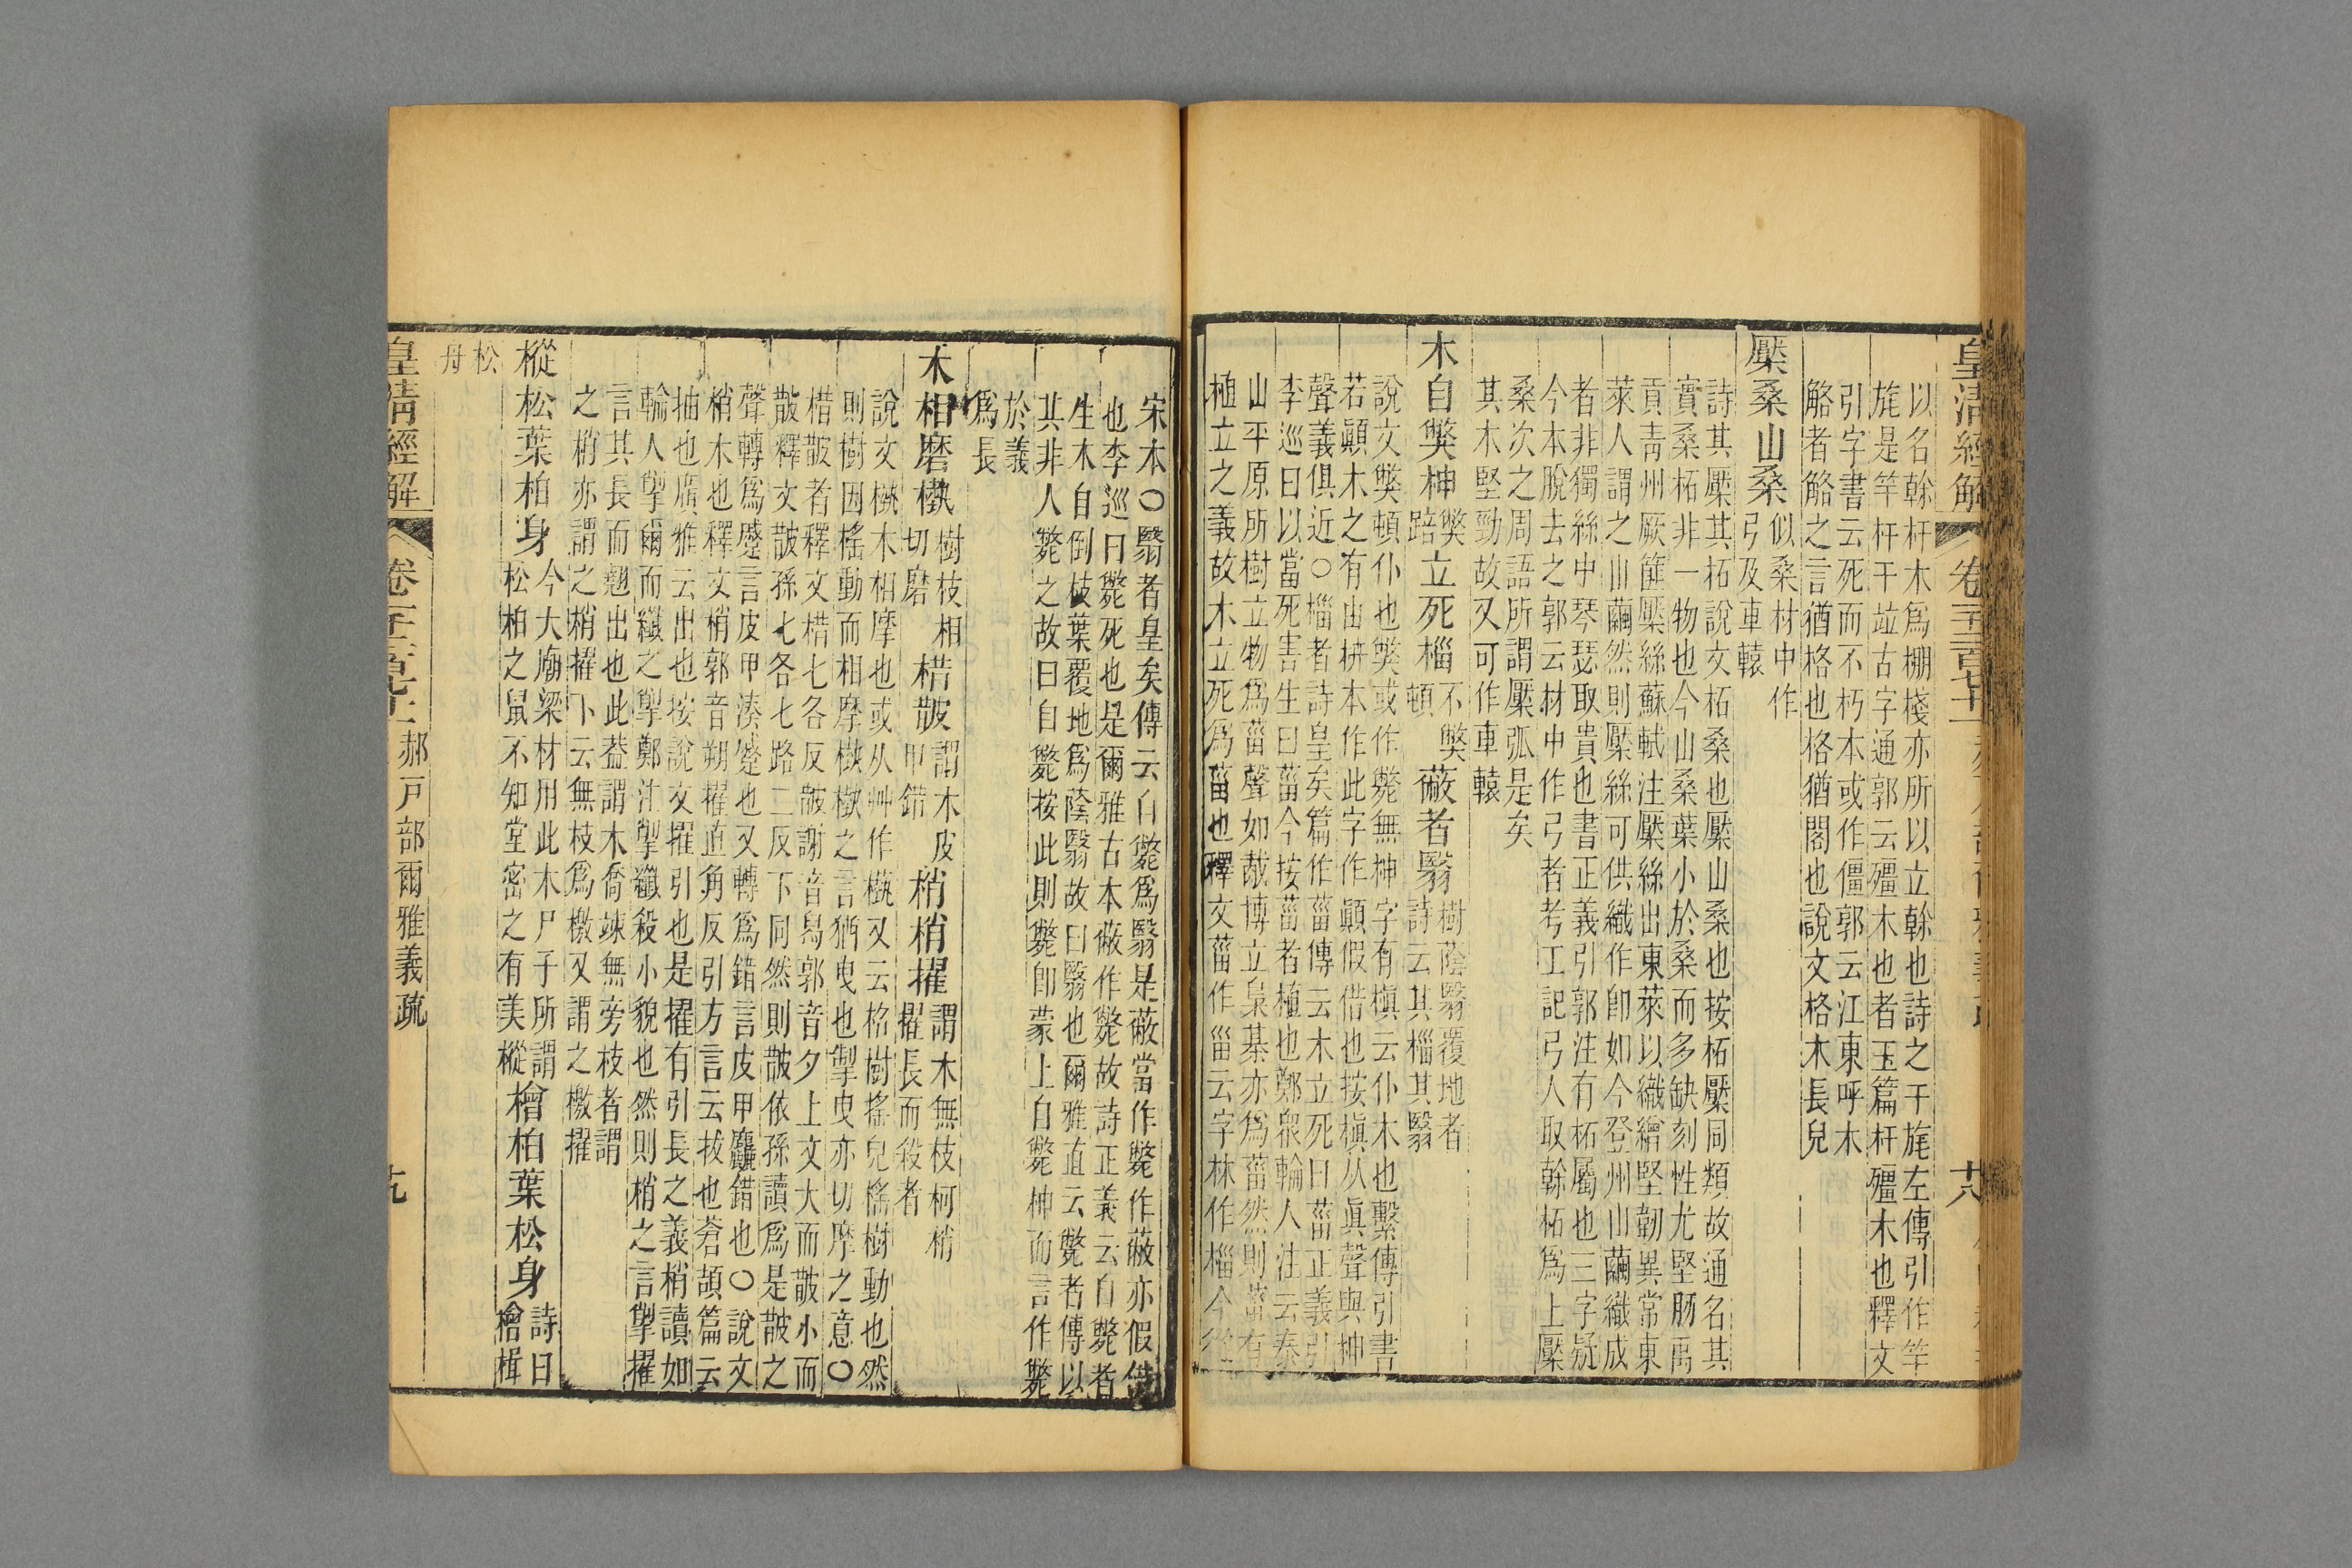 皇清經解
以名榦杆木爲棚棧亦所以立榦也詩之干旄左傳引作竿
旄是竿杆干竝古字通郭云殭木也者玉篇杆殭木也釋文
引字書云死而不朽本或作僵郭云江東呼木
觡者觡之言猶格也格猶閣也說文格木長皃
檿桑山桑
似桑材中作
弓及車轅
詩其檿其柘說文柘桑也檿山桑也按柘檿同類故通名其
實桑柘非一物也今山桑葉小於桑而多缺刻性尤堅肕禹
貢靑州厥篚檿絲蘇軾注檿絲出東萊以織繒堅韌異常東
萊人謂之山繭然則檿絲可供織作卽如今登州山繭織成
者非獨絲中琴瑟取貴也書正義引郭注有柘屬也三字疑
今本脫去之郭云材中作弓者考工記弓人取榦柘爲上檿
桑次之周語所謂檿弧是矣
其木堅勁故又可作車轅
木自獘柛
獘
踣
立死椔
不獘
頓
蔽者翳
樹蔭翳覆地者
詩云其椔其翳
說文獘頓仆也獘或作斃無柛字有槇云仆木也繫傳引書
若顚木之有甹枿本作此字作顚假借也按槇从眞聲與柛
聲義俱近○椔者詩皇矣篇作菑傳云木立死曰菑正義引
李巡曰以當死害生曰菑今按菑者植也鄭衆輪人注云泰
山平原所樹立物爲菑聲如胾博立梟棊亦爲菑然則菑有
植立之義故木立死爲菑也釋文菑作甾云字林作椔今從
宋本○翳者皇矣傳云自斃爲翳是蔽當作斃作蔽亦假借
也李巡曰斃死也是爾雅古本蔽作斃故詩正義云自斃者
生木自倒枝葉覆地爲蔭翳故曰翳也爾雅直云斃者傳以
其非人斃之故曰自斃按此則斃卽蒙上自斃柛而言作斃
於義
爲長
木相磨槸
樹枝相
切磨
棤㪚
謂木皮
甲錯
梢梢擢
謂木無枝柯梢
擢長而殺者
說文槸木相摩也或从艸作蓺又云柖樹搖皃榣樹動也然
則樹因榣動而相摩槸槸之言猶曳也掣曳亦切摩之意○
棤㪚者釋文棤七各反㪚謝音舄郭音夕上文大而㪚小而
㪚釋文㪚孫七各七路二反下同然則㪚依孫讀爲是㪚之
聲轉爲蹙言皮甲湊蹙也又轉爲錯言皮甲麤錯也○說文
梢木也釋文梢郭音朔擢直角反引方言云拔也蒼頡篇云
抽也廣雅云出也按說文擢引也是擢有引長之義梢讀如
輪人掣爾而纖之掣鄭注掣纖殺小貌也然則梢之言掣擢
言其長而翹出也此葢謂木喬竦無旁枝者謂
之梢亦謂之梢擢下云無枝爲檄又謂之檄擢
樅松葉柏身
今大廟梁材用此木尸子所謂
松柏之鼠不知堂密之有美樅
檜柏葉松身
詩曰
檜楫
松
母
皇清經解
郝戸部爾雅義疏